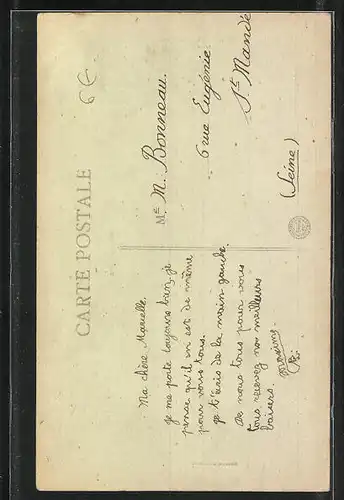 CARTE POSTALE
6 €
Ma chère Marcelle.
je me porte toujours bien je
pense qu'il en est de même
pour vous tous.
je t'écris de la main gauche.
De nous tous pour vous
tous recevez nos meilleurs
baisers.
Mlle M. Bonneau.
6 rue Eugénie
St Mandé
(Seine)